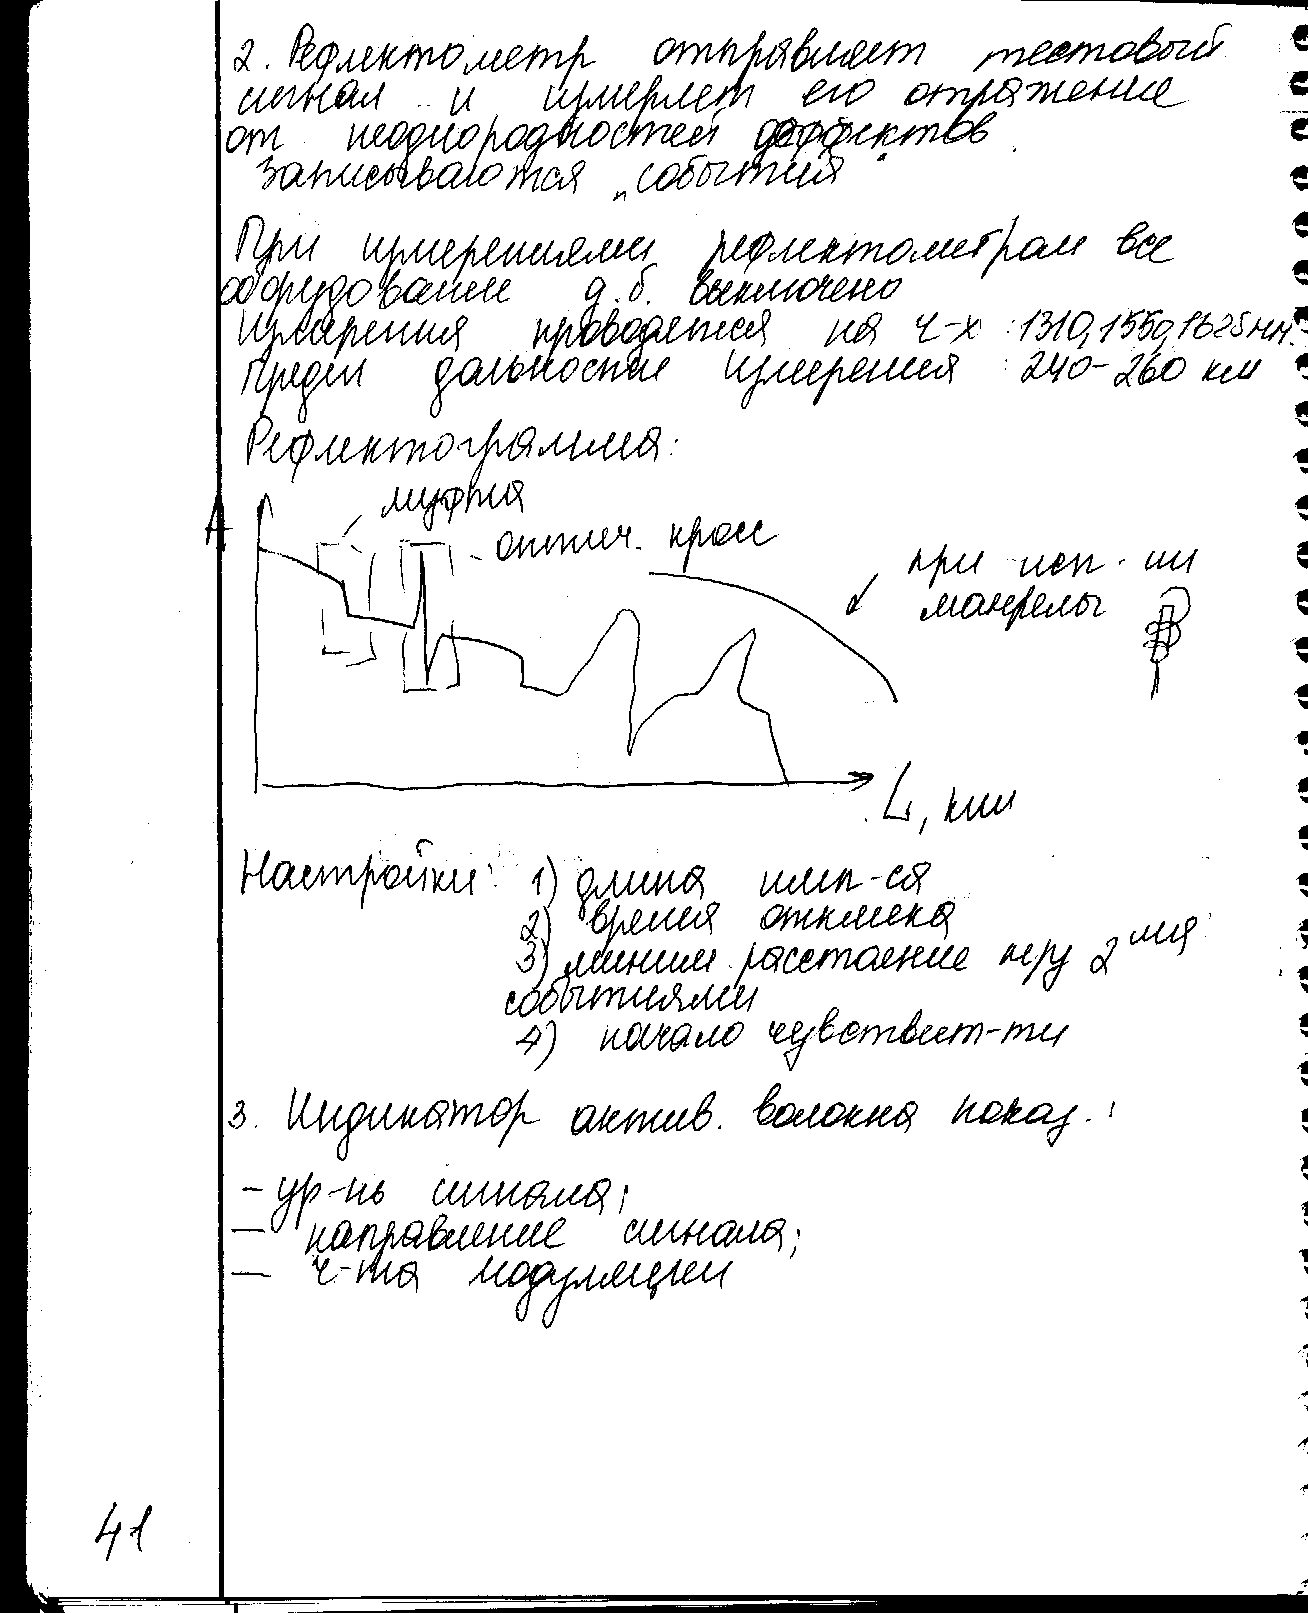 2. Рефлектометр отправляет тестовый
сигнал и измеряет его отражение
от неоднородностей дефектов.
Записываются „события"
При измерениями рефлектометрам все
оборудование д.б. выключено
Измерения проводятся на ч-х : 1310, 1550, 1625 нм.
Предел дальности измерения : 240-260 км
Рефлектограмма:
А
муфта
- оптич. кросс
при исп-ии
манрелы
L, км
Настройки: 1) длина имп-са
2) время отклика
3) миним расстояние м/у 2мя
событиями
4) начало чувствит-ти
3. Индикатор актив. волокна показ.:
- ур-нь сигнала;
- направление сигнала;
- ч-та модуляции
41